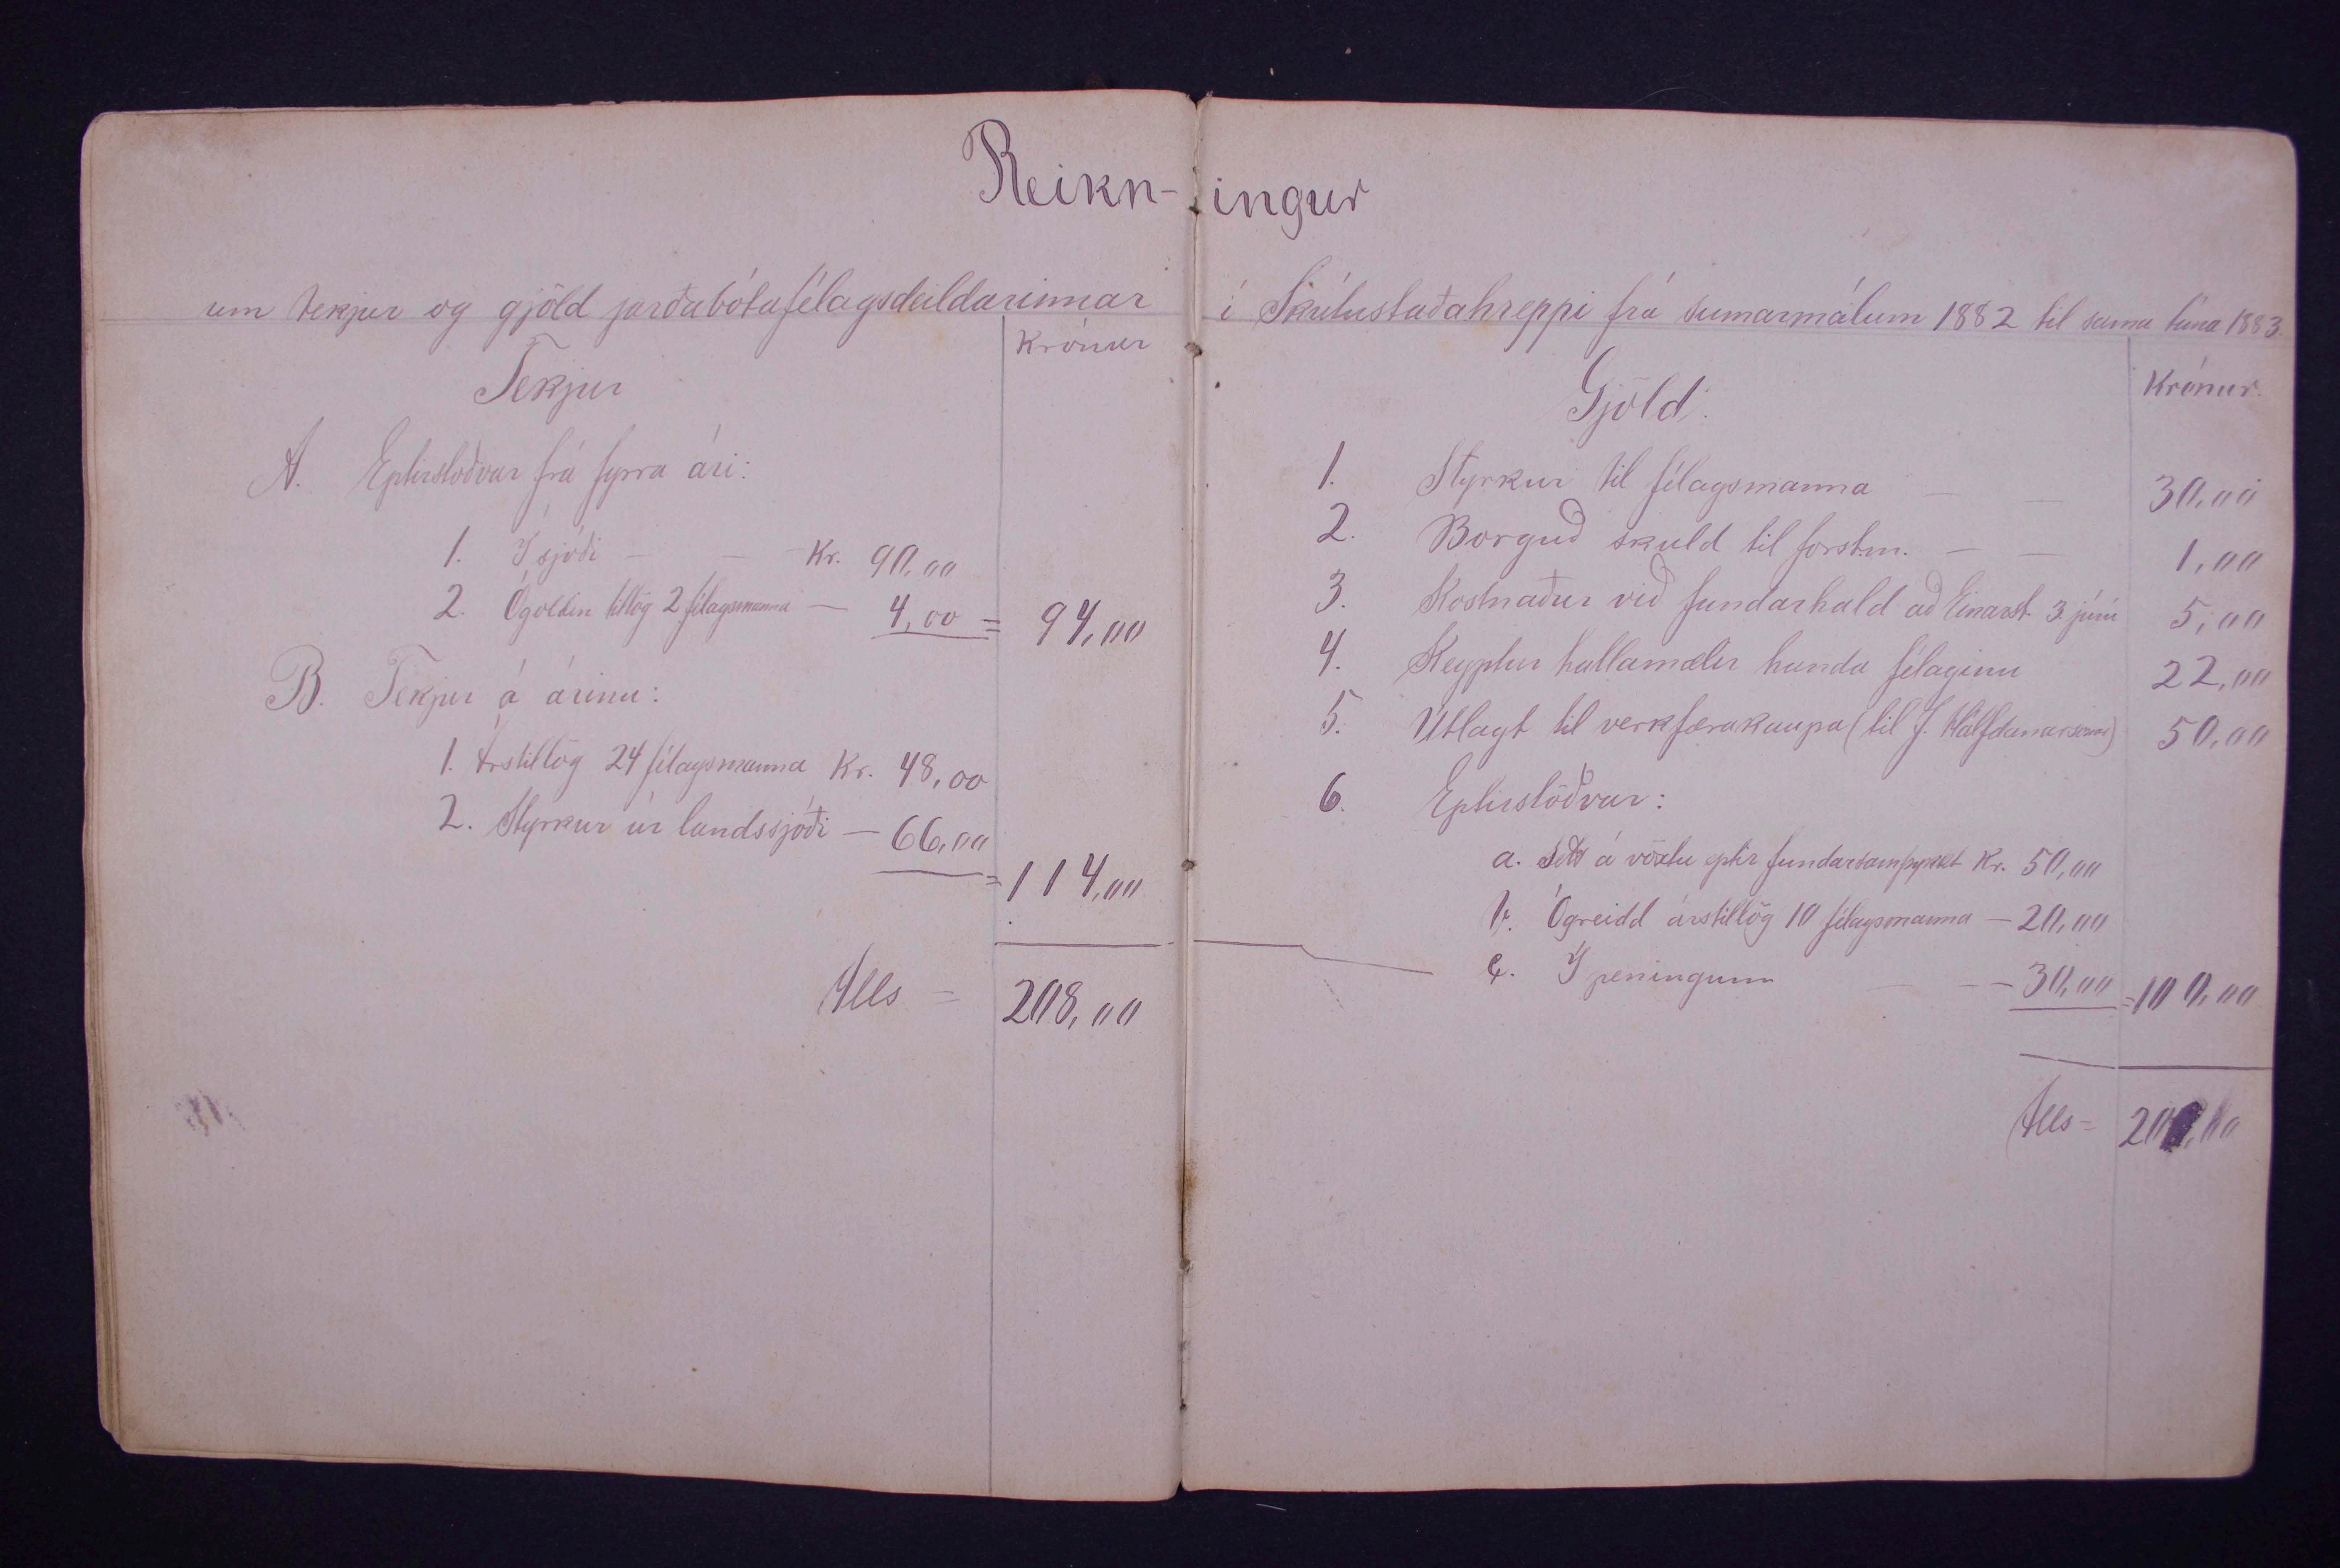 Reikn- ingur
um tekjur og gjöld jarðabótafélagsdeildarinnar í Skútustaðahreppi frá sumarmálum 1882 til sama tíma 1883
Krónur
Tekjur
A. Eptirstöðvar frá fyrra ári:
1. Í sjóði — — Kr. 90,00
2. Ógoldin tillög 2 félagsmanna — 4,00 = 94,00
B. Tekjur á árinu:
1. Árstillög 24 félagsmanna Kr. 48,00
2. Styrkur úr landssjóði — 66,00
= 114,00
Alls = 208,00
Krónur
Gjöld.
1. Styrkur til félagsmanna — — 30,00
2. Borguð skuld til forstm. — — 1,00
3. Kostnaður við fundarhald að Einarst. 3. júní 5,00
4. Keyptur hallamælir handa félaginu 22,00
5. Útlagt til verkfærakaupa (til J. Hálfdanarsonar) 50,00
6. Eptirstöðvar:
a. Sett á vöxtu eptir fundarsamþykkt Kr. 50,00
b. Ógreidd árstillög 10 félagsmanna — 20,00
c. Í peningum — — 30,00 = 100,00
Alls =